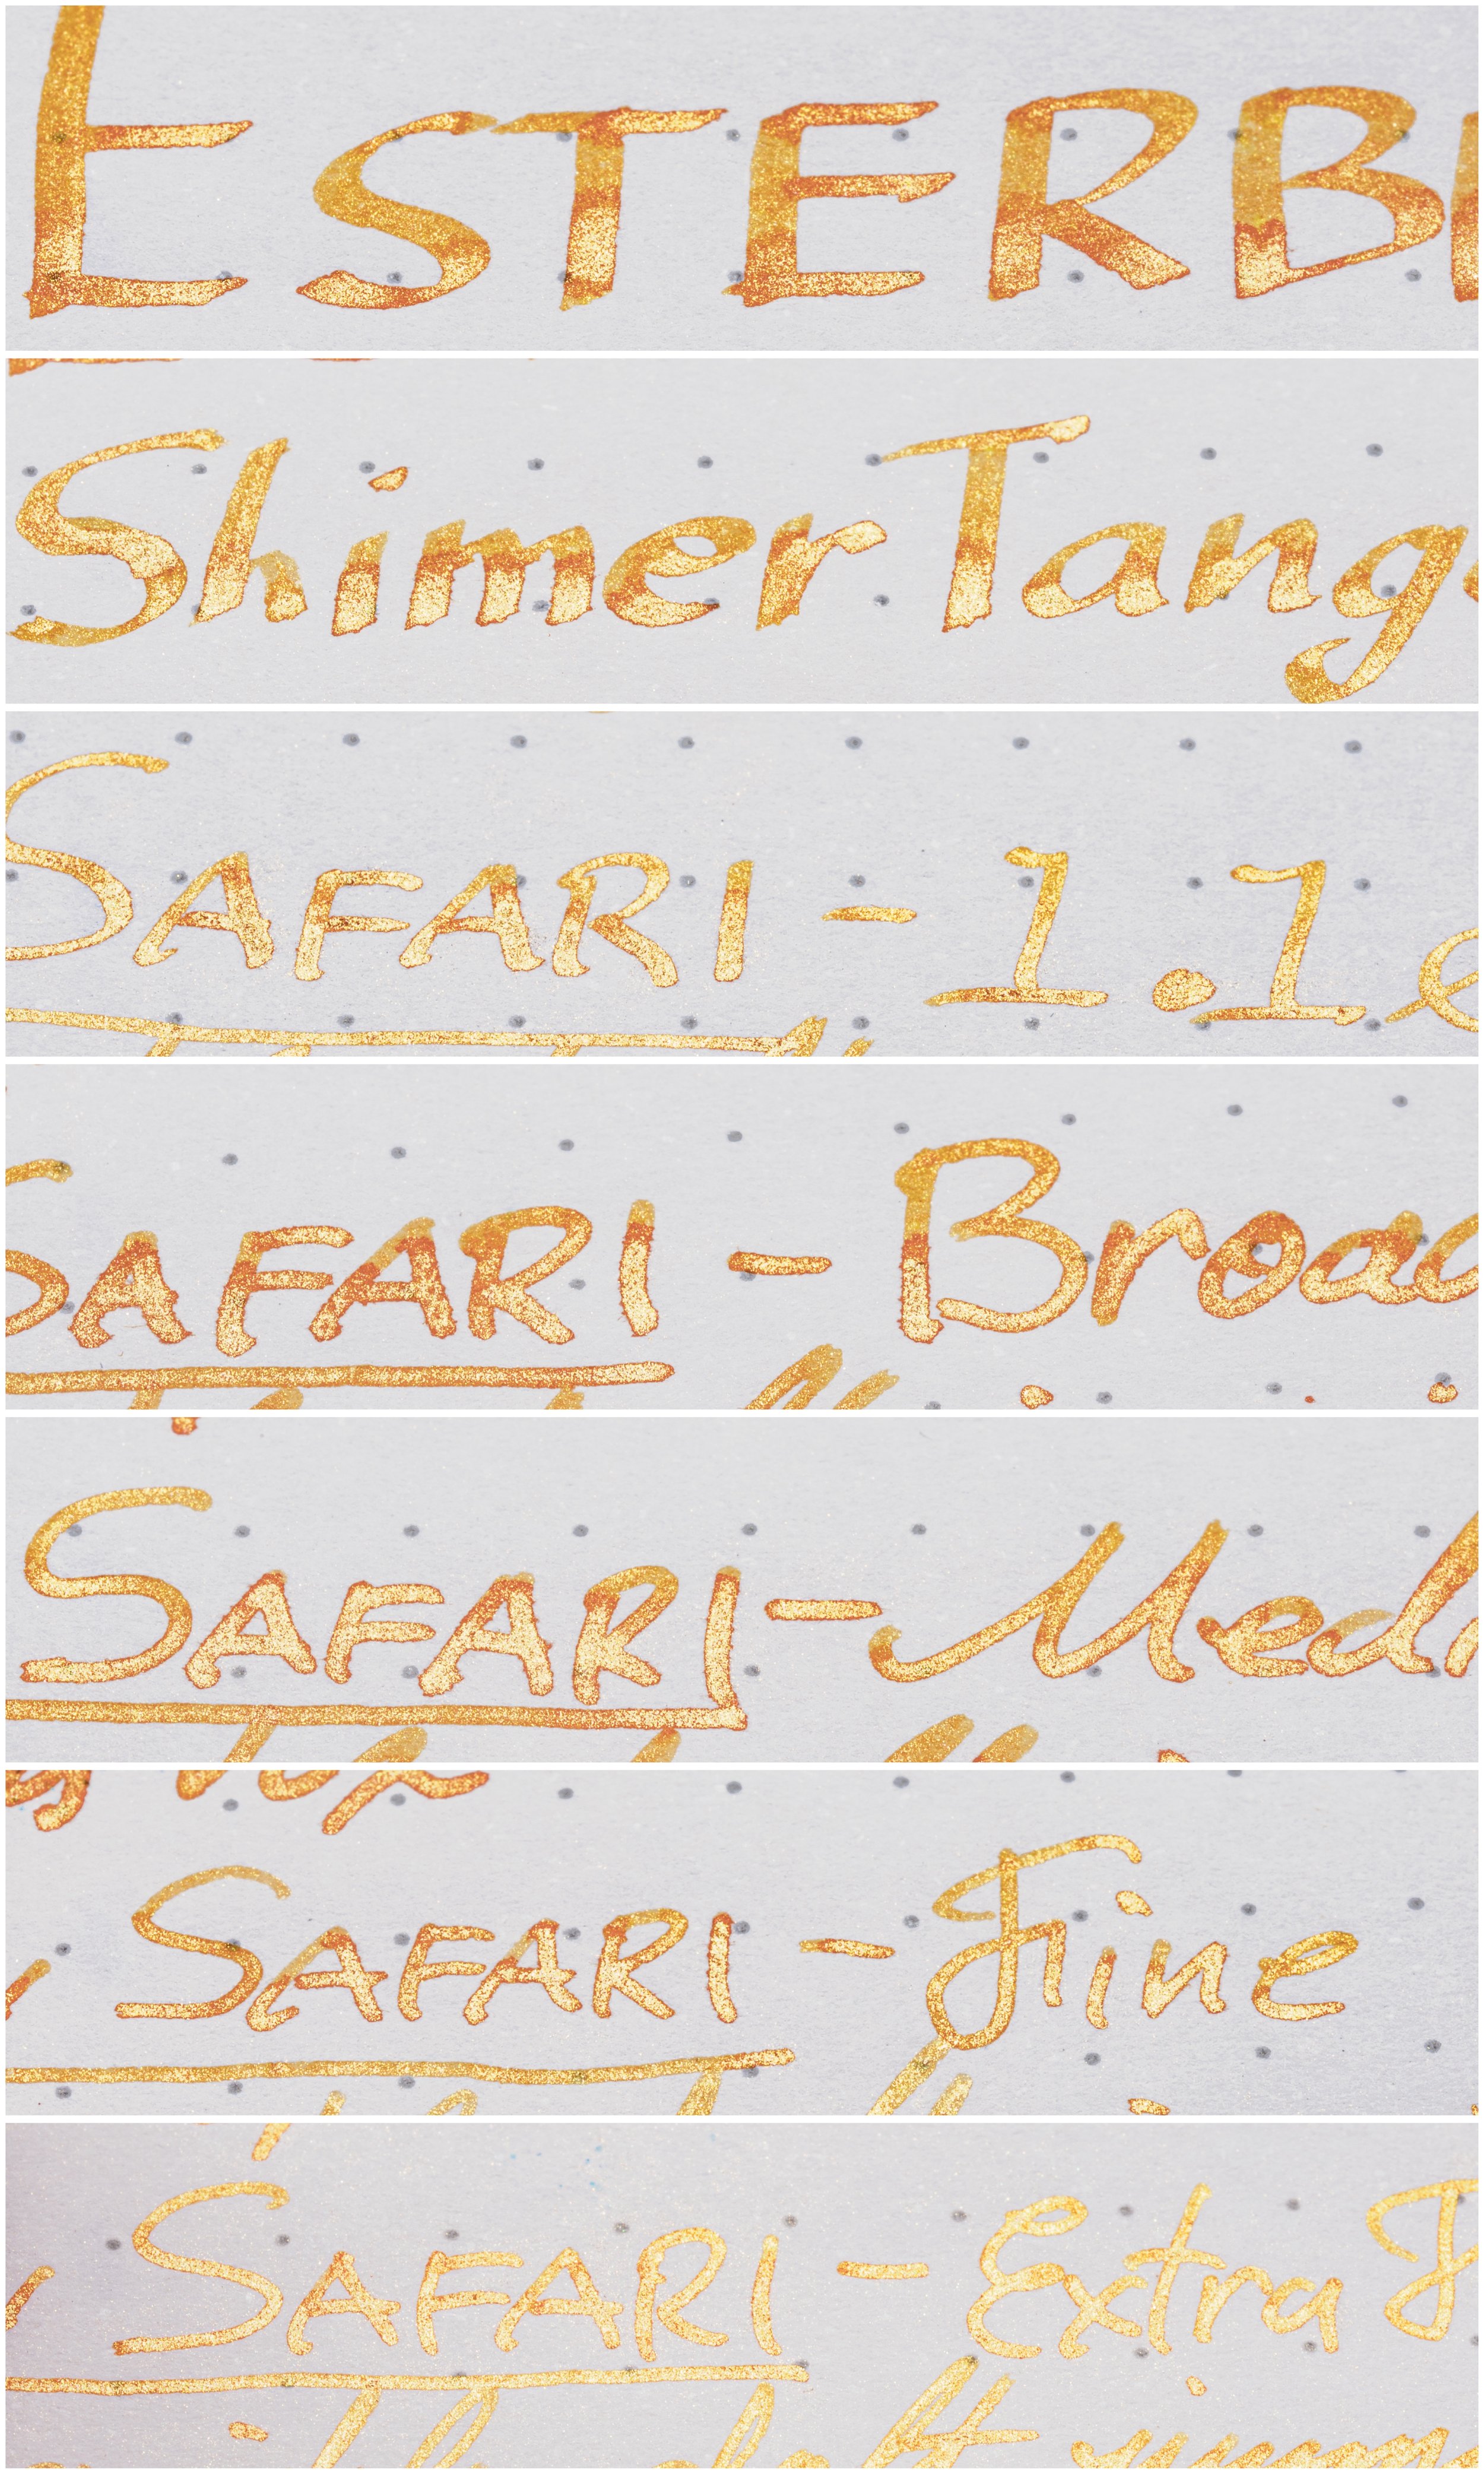 ESTERB
Shimer Tang
SAFARI - 1.1
SAFARI - Broad
SAFARI - Med
SAFARI - Fine
SAFARI - Extra F